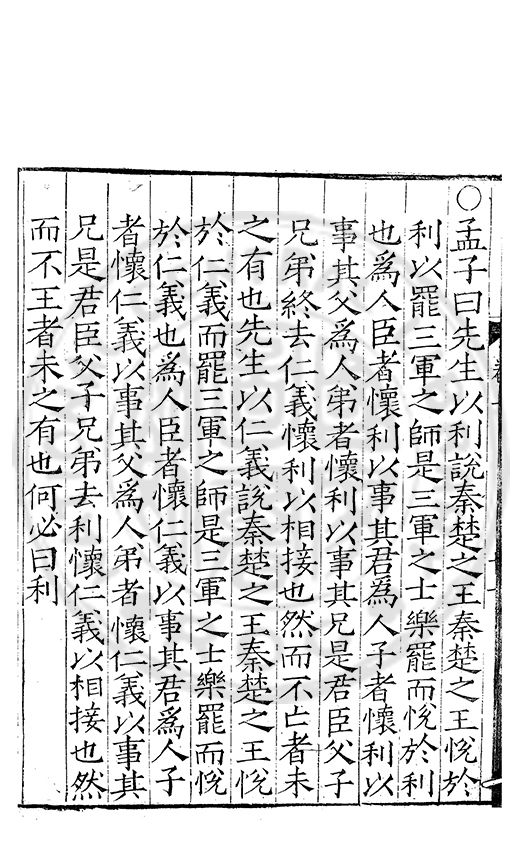 ○孟子曰先生以利說秦楚之王秦楚之王悅於
利以罷三軍之師是三軍之士樂罷而悅於利
也爲人臣者懷利以事其君爲人子者懷利以
事其父爲人弟者懷利以事其兄是君臣父子
兄弟終去仁義懷利以相接也然而不亡者未
之有也先生以仁義說秦楚之王秦楚之王悅
於仁義而罷三軍之師是三軍之士樂罷而悅
於仁義也爲人臣者懷仁義以事其君爲人子
者懷仁義以事其父爲人弟者懷仁義以事其
兄是君臣父子兄弟去利懷仁義以相接也然
而不王者未之有也何必曰利